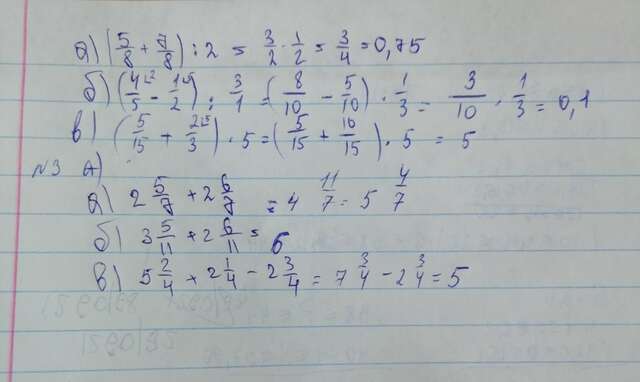 а) (5/8 + 7/8) : 2 = 3/2 · 1/2 = 3/4 = 0,75
б) (4/5 - 1/2) : 3/1 = (8/10 - 5/10) · 1/3 = 3/10 · 1/3 = 0,1
в) (5/15 + 2/3) · 5 = (5/15 + 10/15) · 5 = 5
№3 А)
а) 2 5/7 + 2 6/7 = 4 11/7 = 5 4/7
б) 3 5/11 + 2 6/11 = 6
в) 5 2/4 + 2 1/4 - 2 3/4 = 7 3/4 - 2 3/4 = 5